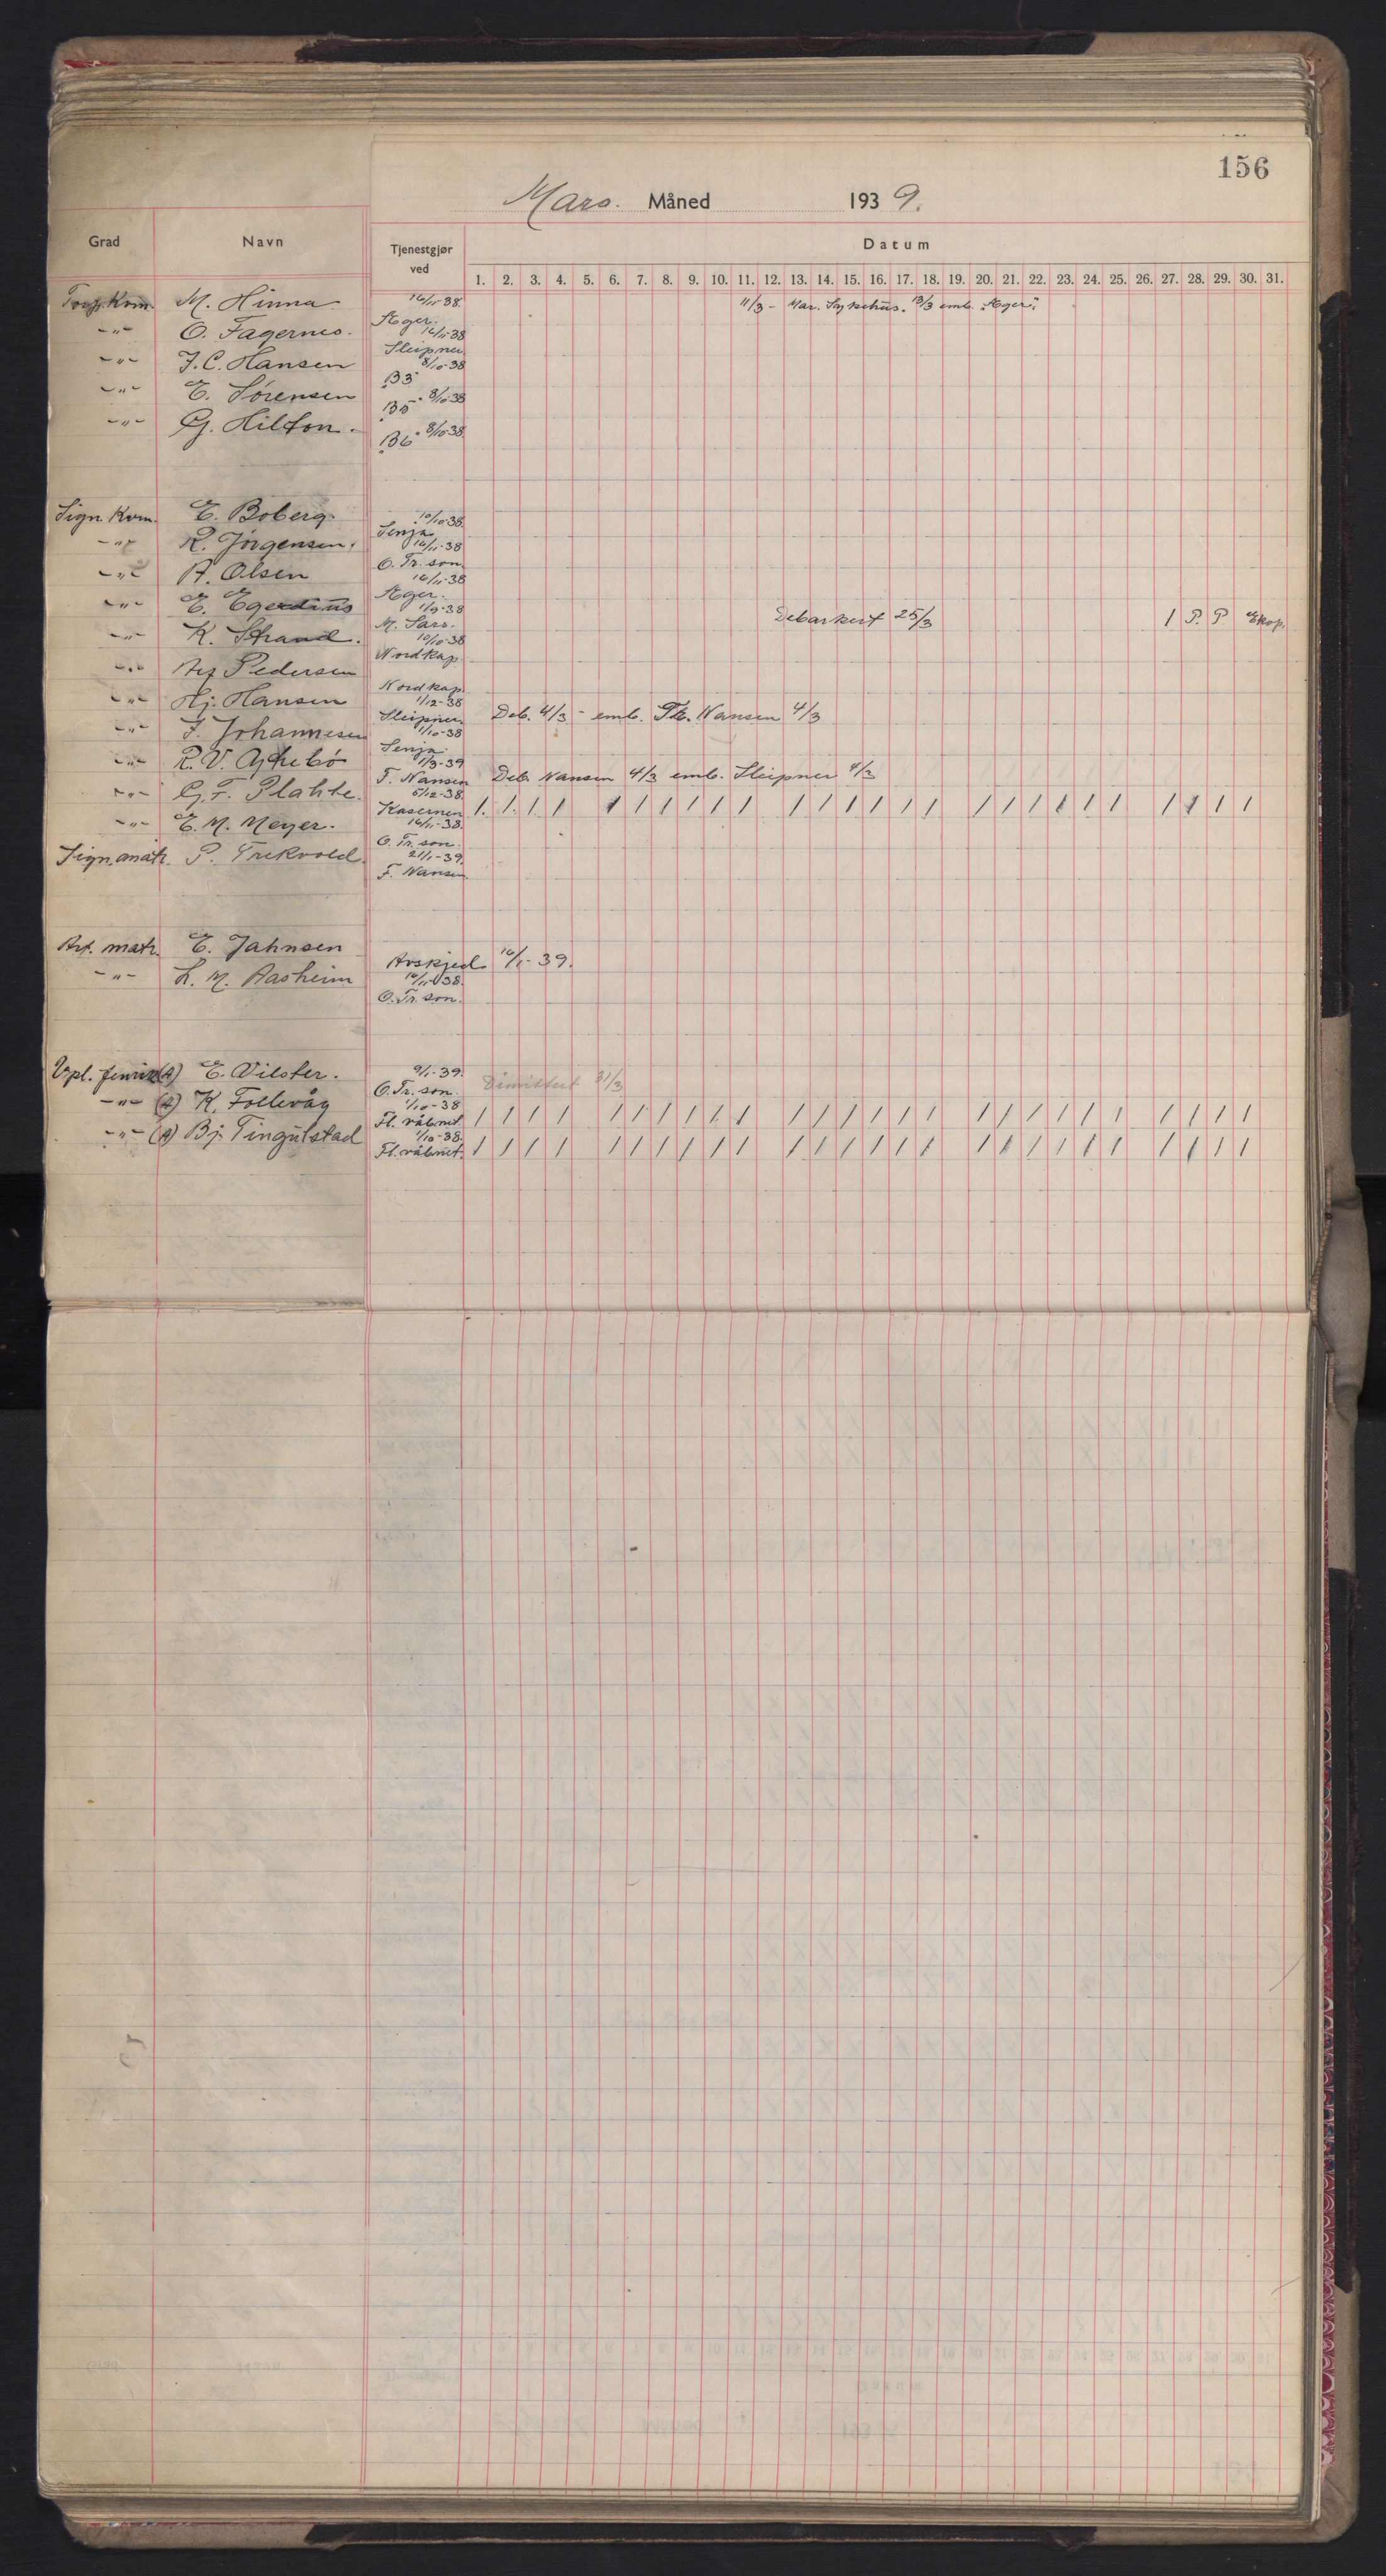 156
Mars. Måned 193 9.
Grad Navn Tjenestgjør ved Datum
1. 2. 3. 4. 5. 6. 7. 8. 9. 10. 11. 12. 13. 14. 15. 16. 17. 18. 19. 20. 21. 22. 23. 24. 25. 26. 27. 28. 29. 30. 31.
Torp. Kvm. M. Hinna 16/11-38. Æger. 11/3 - Mar. Sykehus. 13/3 emb. "Æger".
-"- O. Fagernes. 16/11-38 Sleipner
-"- J. C. Hansen 8/10-38 "B3"
-"- E. Sørensen 8/10-38 "B5"
-"- G. Hilton. 8/10-38. "B6"
Sign. Kvm. E. Boberg. 10/10-38. Senja
-"- R. Jörgensen. 16/11-38 O. Tr. son.
-"- A. Olsen 16/11-38 Æger.
-"- E. Egerdius 1/9-38 M. Sars. Debarkert 25/3 / P. P. Ekop.
-"- K. Strand. 10/10-38 Nordkap.
-"- Arf Pedersen Nordkap.
-"- Hj. Hansen 1/12-38 Sleipner Deb. 4/3 - emb. Nansen 4/3
-"- J. Johannesen 11/10-38 Senja.
-"- R. V. 1/3-39 F. Nansen Deb. Nansen 4/3 emb. Sleipner 4/3
-"- G. F. Plahte. 5/12-38. Kasernen 1. 1. 1 1 1 1 1 1 1 1 1 1 1 1 1 1 1 1 1 1 1 1 1 1 1 1
-"- E. M. Meyer. 16/11-38. O. Tr. son.
Sign. matr. P. Trekvold. 21/1-39. F. Nansen.
Art. matr. E. Jahnsen Avskjed. 16/1-39.
-"- L. M. Aasheim 16/11-38. O. Tr. son.
Vpl. fenrik (A) E. Vilster. 9/1-39. O. Tr. son. Dimittert 31/3
-"- (A) K. Follevåg 1/10-38 Fl. våbnet. / / / / / / / / / / / / / / / / / / / / / / / / / /
-"- (A) Bj. Tingulstad 1/10-38. Fl. våbnet. / / / / / / / / / / / / / / / / / / / / / / / / / /